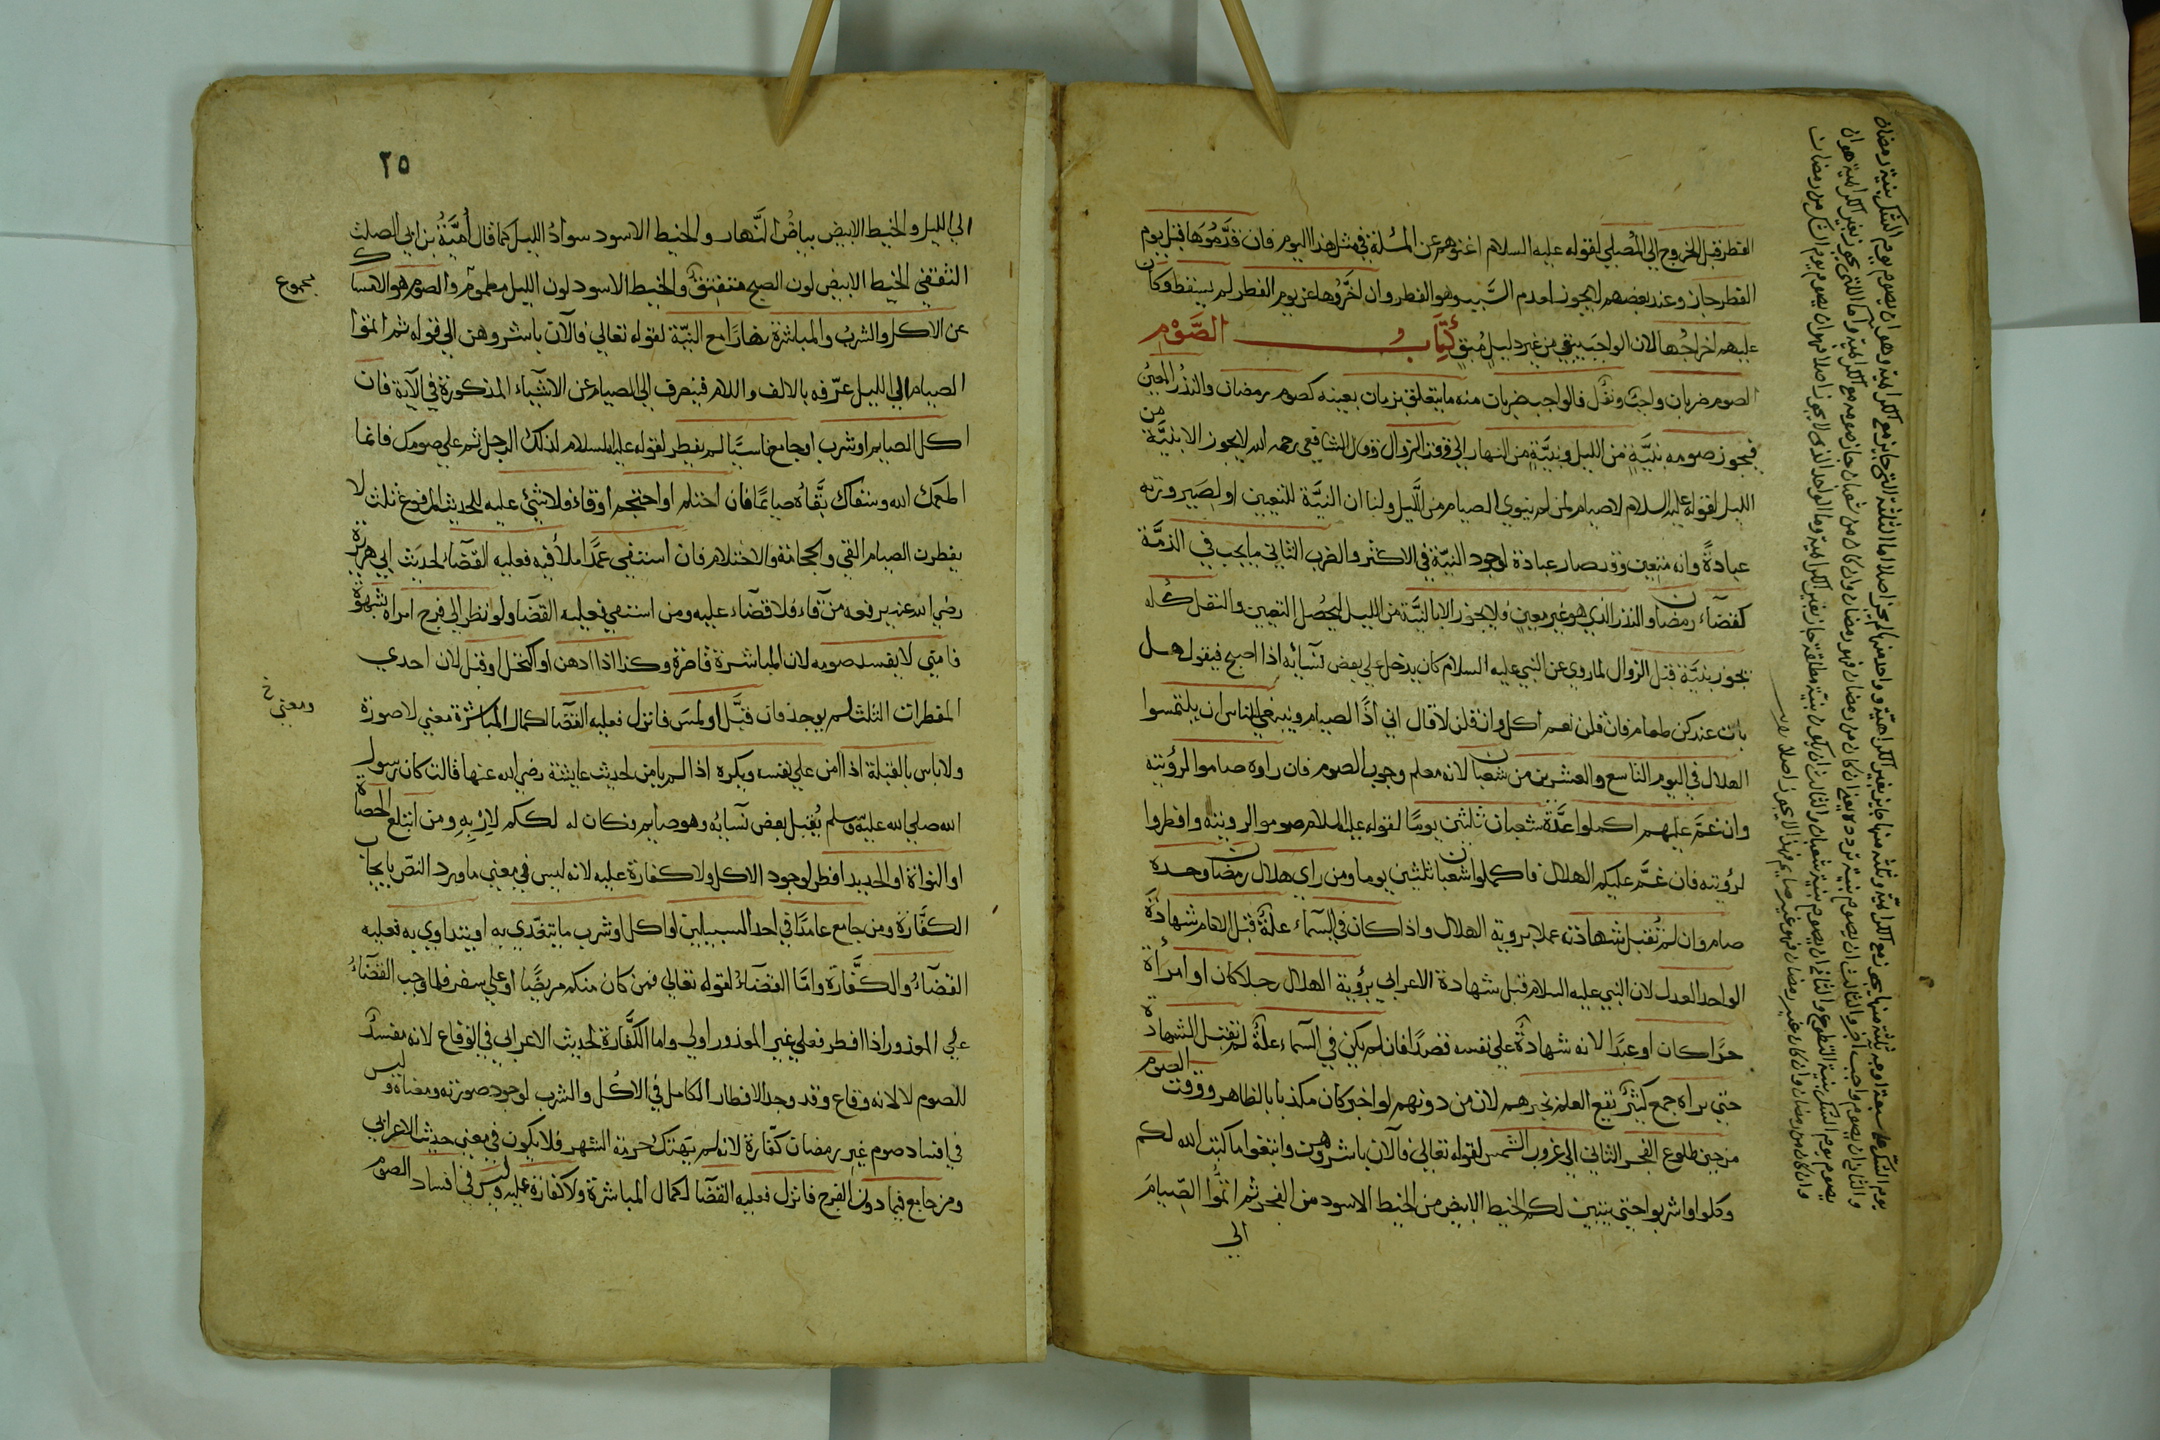 الفطر قبل الخروج الي المصلي لقوله عليه السلام اغنوهم عن المسئلة في مثل هذا اليوم فان قدموها قبل يوم
الفطر جاز وعند بعضهم لايجوز لعدم السبب وهو الفطر وان اخروها عن يوم الفطر لم يسقط وكان
عليهم اخراجها لان الواجب يبقي من غير دليل مبق كتاب الصوم
الصوم ضربان واجب ونفل فالواجب ضربان منه ما يتعلق بزمان بعينه كصوم رمضان والنذر المعين
فيجوز صومه بنية من الليل وبنية من النهار الي وقت الزوال وقال الشافعي رحمه الله لايجوز الا بنية من
الليل لقوله عليه السلام لاصيام لمن لم ينوي الصيام من الليل ولنا ان النية للتعيين او لصيرورته
عبادة وانه متعين وقد صار عبادة لوجود النية في الاكثر والضرب الثاني مايجب في الذمة
كقضاء رمضان والنذر الذي هو غير معين فلايجوز الا بالنية من الليل ليحصل التعيين والنفل كله
يجوز بنية قبل الزوال لماروي عن النبي عليه السلام كان يدخل علي بعض نسائه اذا اصبح فيقول هل
بات عندكن طعام فان قلن نعم اكل وان قلن لا قال اني اذا لصيام وينبغي للناس ان يلتمسوا
الهلال في اليوم التاسع والعشرين من شعبان لانه معلم وجوب الصوم فان راوه صاموا لرؤيته
وان غم عليهم اكملوا عدة شعبان ثلثين يوما لقوله عليه السلام صوموا لرويته وافطروا
لرؤيته فان غم عليكم الهلال فاكملوا شعبان ثلثين يوما ومن راي هلال رمضان وحده
صام وان لم تقبل شهادته عملا بروية الهلال واذا كان في السماء علة قبل الامام شهادة
الواحد العدل لان النبي عليه السلام قبل شهادة الاعرابي برؤية الهلال رجلا كان او امرأة
حرا كان او عبدا لانه شهادة علي نفسه قصدا فان لم يكن في السماء علة لم تقبل الشهادة
حتي يراه جمع كثير يقع العلم بخبرهم لان من دونهم لو اخبر كان مكذبا بالظاهر ووقت الصوم
من حين طلوع الفجر الثاني الي غروب الشمس لقوله تعالي فالآن باشروهن وابتغوا ما كتب الله لكم
وكلوا واشربوا حتي يتبين لكم الخيط الابيض من الخيط الاسود من الفجر ثم اتموا الصيام
الي
٢٥
الي الليل والخيط الابيض بياض النهار والخيط الاسود سواد الليل كما قال أمية بن ابي الصلت
الثقفي الخيط الابيض لون الصبح منفتق والخيط الاسود لون الليل مطموم والصوم هو الامساك
عن الاكل والشرب والمباشرة نهارا مع النية لقوله تعالي فالآن باشروهن الي قوله ثم اتموا
الصيام الي الليل عرفه بالالف واللام فينصرف الي الصيام عن الاشياء المذكورة في الآية فان
اكل الصايم او شرب او جامع ناسيا لم يفطر لقوله عليه السلام لذلك الرجل تم علي صومك فانما
اطعمك الله وسقاك بقاه صايما فان احتلم او احتجم او قاء فلا شيء عليه للحديث المرفوع ثلث لا
يفطرن الصيام القي والحجامة والاحتلام فان استقي عمدا ملأ فيه فعليه القضاء لحديث ابي هريرة
رضي الله عنه يرفعه من قاء فلا قضاء عليه ومن استقي فعليه القضا ولو نظر الي فرج امراه بشهوة
فامني لا يفسد صومه لان المباشرة قاصرة وكذا اذا ادهن او اكتحل وقبل لان احدي
المفطرات الثلث لم يوجد فان قبل او لمس فانزل فعليه القضا لكمال المباشرة معني لا صورة
ولاباس بالقبلة اذا امن علي نفسه ويكره اذا لم يامن لحديث عايشة رضي الله عنها قالت كان رسول
الله صلي الله عليه وسلم يقبل بعض نسائه وهو صايم وكان املككم لاربه ومن ابتلع الحصاة
او النواة او الحديد افطر لوجود الاكل ولا كفارة عليه لانه ليس في معني ماورد النص بايجاب
الكفارة ومن جامع عامدا في احد السبيلين او اكل او شرب ما يتغدي به او يتداوي به فعليه
القضاء والكفارة واما القضاء لقوله تعالي فمن كان منكم مريضا او علي سفر فلما وجب القضاء
علي المعذور اذا افطر فعلي غير المعذور اولي واما الكفارة لحديث الاعرابي في الوقاع لانه مفسد
للصوم لا لانه وقاع وقد وجد الافطار الكامل في الاكل والشرب لوجود صورته ومعناه وليس
في افساد صوم غير رمضان كفارة لانه لم يهتك حرمة الشهر فلا يكون في معني حديث الاعرابي
ومن جامع فيما دون الفرج فانزل فعليه القضا لكمال المباشرة ولا كفارة عليه وليس في افساد الصوم
ومعني خ